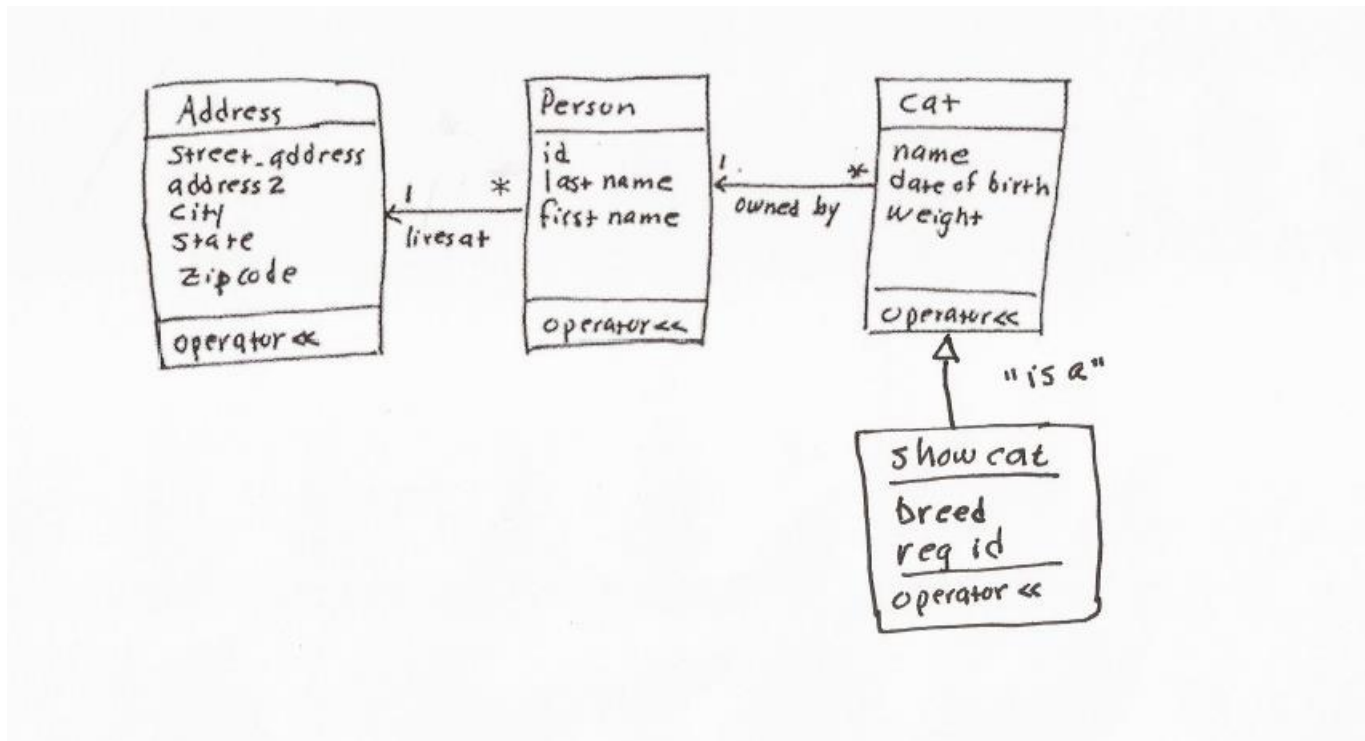 Address
street_address
address2
city
state
zipcode
operator<<
1
*
lives at
Person
id
last name
first name
operator<<
1
*
owned by
cat
name
date of birth
weight
operator<<
"is a"
show cat
breed
reg id
operator<<